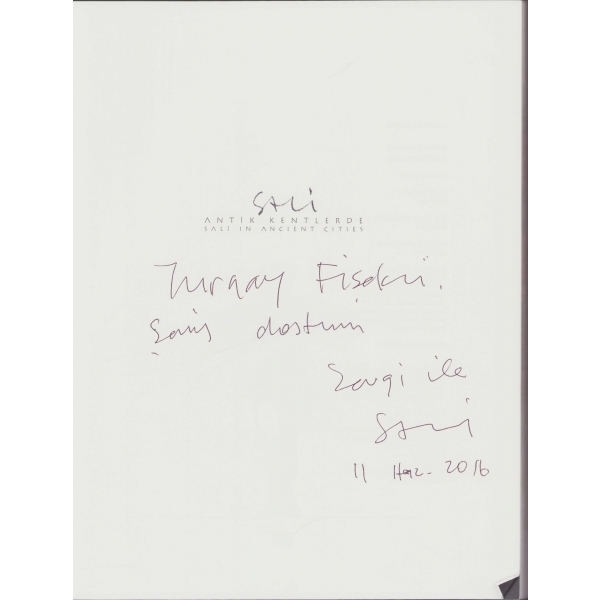 SALİ
ANTİK KENTLERDE
SALİ IN ANCIENT CITIES
Turgay Fişekçi.
Şair dostum
Sevgi ile
SALİ
11 Haz. 2016